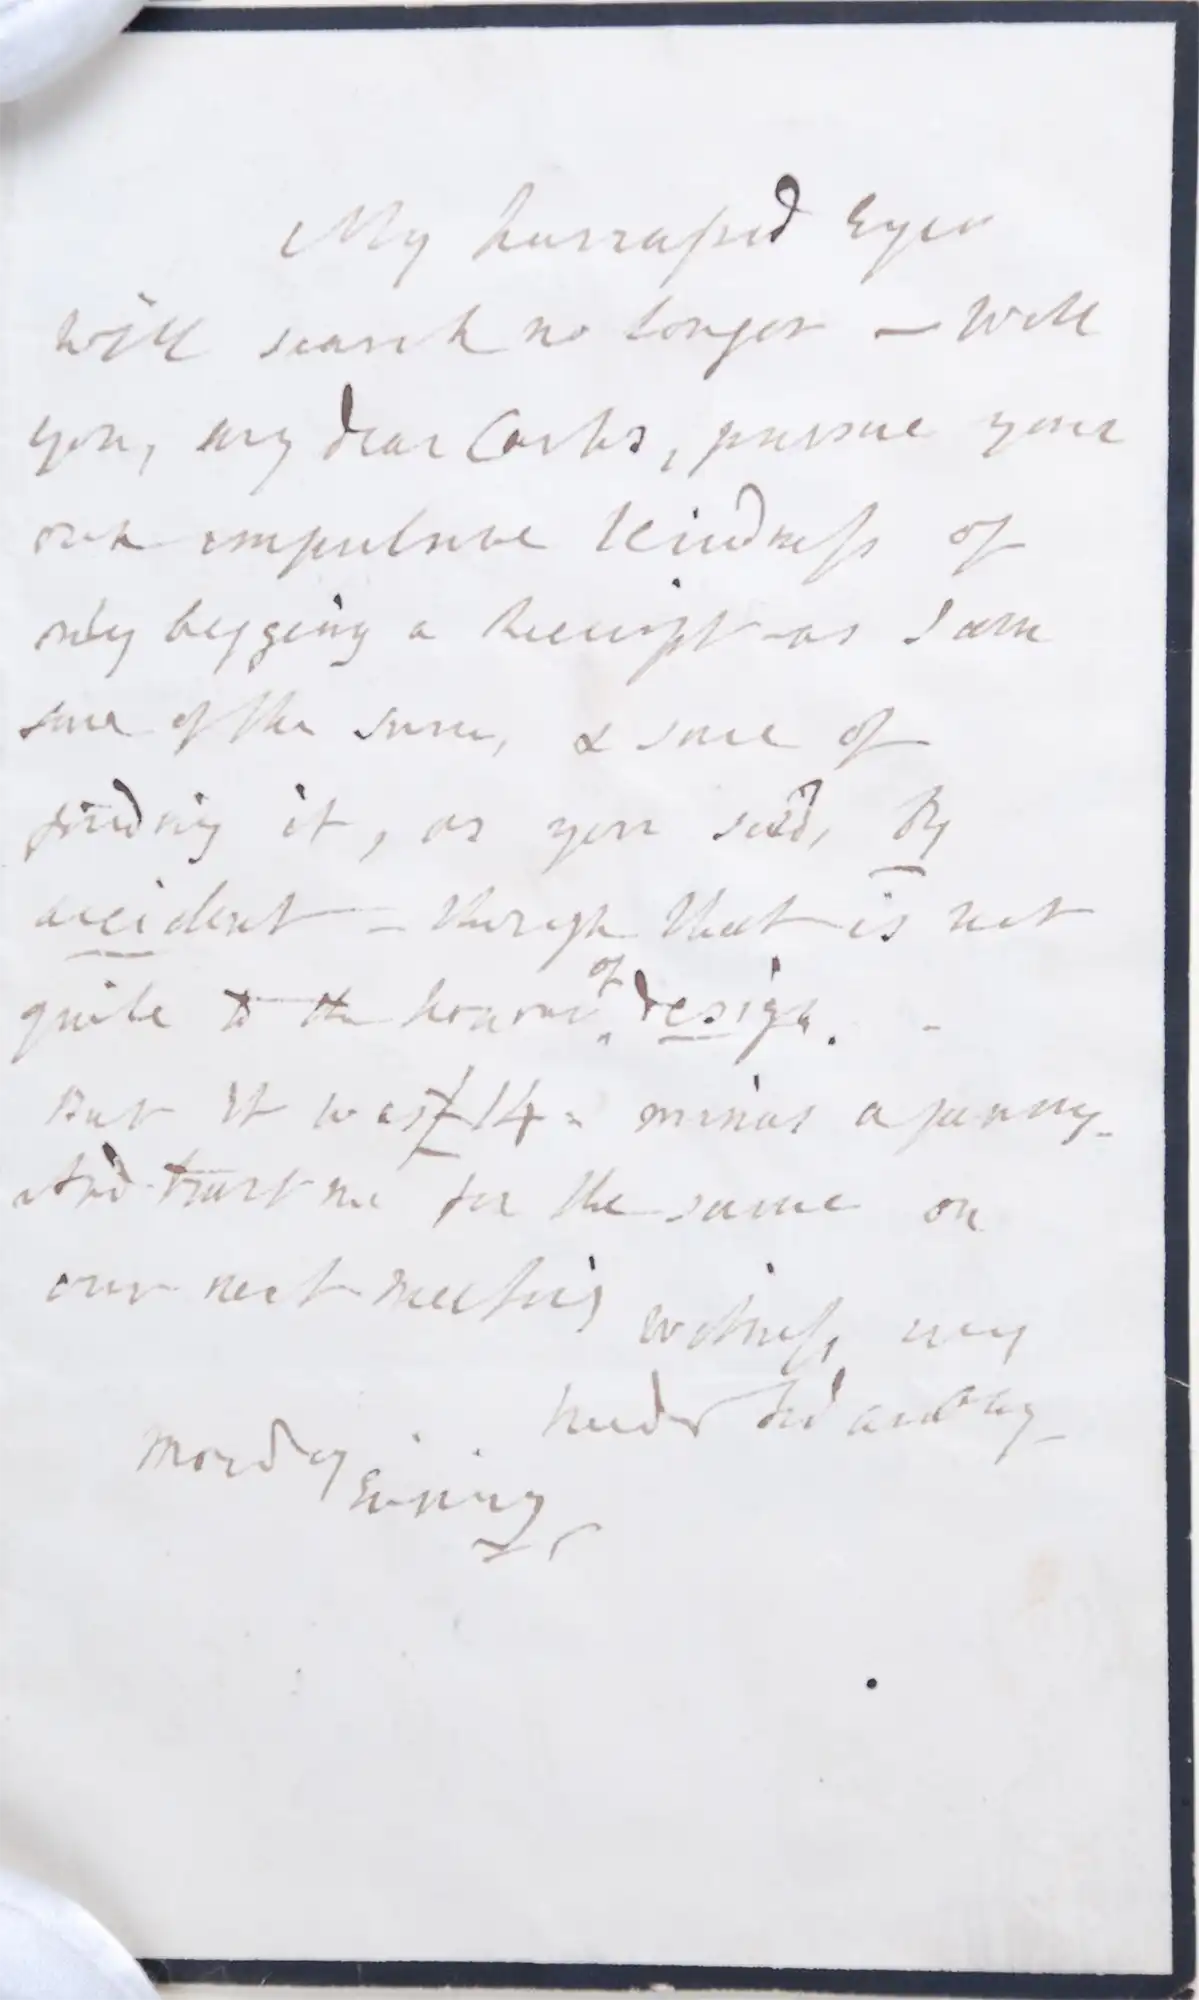 My harrassed Eyes
will search no longer — will
you, my dear Carlos, pursue your
own impulsive kindness of
only begging a Receipt - as I am
sure of the sum, & sure of
finding it, as you said, By
accident — though that is not
quite to the honour of design.
But It was £14 = minus a penny -
And trust me for the same on
our next meeting
witness, my
Monday Evening